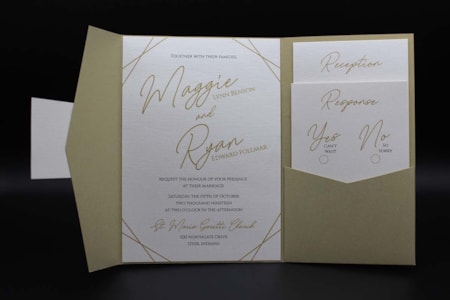 TOGETHER WITH THEIR FAMILIES,
Maggie
LYNN BENSON
and
Ryan
EDWARD FOLLMAR
REQUEST THE HONOUR OF YOUR PRESENCE
AT THEIR MARRIAGE
SATURDAY, THE FIFTH OF OCTOBER
TWO THOUSAND NINETEEN
AT TWO O'CLOCK IN THE AFTERNOON
St. Maria Goretti Church
DRIVE
INDIANA
Reception
Response
Yes
CAN'T
WAIT
No
SO
SORRY